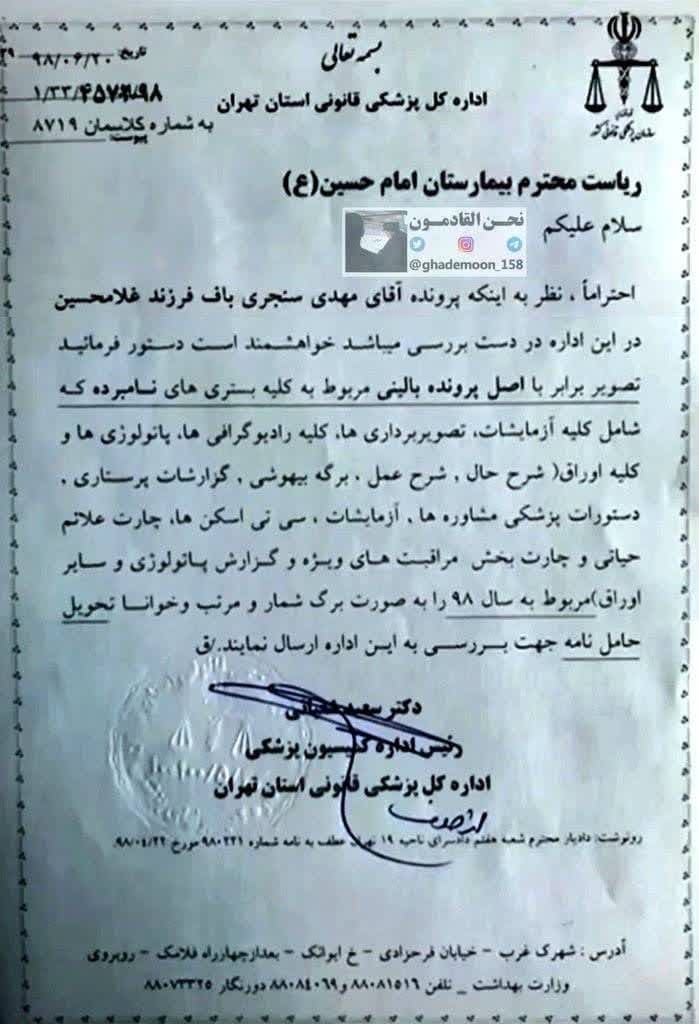 بسمه تعالی
تاریخ: ۹۸/۰۶/۲۰
۱/۳۳/۴۵۷۴/۹۸
به شماره کلاسمان ۸۷۱۹
پیوست:
اداره کل پزشکی قانونی استان تهران
سازمان پزشکی قانونی کشور
ریاست محترم بیمارستان امام حسین(ع)
سلام علیکم
نحـن القادمـون
@ghademoon_158
احتراماً ، نظر به اینکه پرونده آقای مهدی سنجری باف فرزند غلامحسین
در این اداره در دست بررسی میباشد خواهشمند است دستور فرمائید
تصویر برابر با اصل پرونده بالینی مربوط به کلیه بستری های نامبرده که
شامل کلیه آزمایشات، تصویربرداری ها، کلیه رادیوگرافی ها، پاتولوژی ها و
کلیه اوراق( شرح حال , شرح عمل , برگه بیهوشی , گزارشات پرستاری ,
دستورات پزشکی مشاوره ها , آزمایشات ، سی تی اسکن ها، چارت علائم
حیاتی و چارت بخش مراقبت های ویژه و گزارش پاتولوژی و سایر
اوراق)مربوط به سال ۹۸ را به صورت برگ شمار و مرتب وخوانا تحویل
حامل نامه جهت بررسی به این اداره ارسال نمایند./ق
دکتر سعید
رئیس اداره کمیسیون پزشکی
اداره کل پزشکی قانونی استان تهران
رونوشت: دادیار محترم شعبه هفتم دادسرای ناحیه ۱۹ تهران عطف به نامه شماره ۹۸۰۲۲۱ مورخ ۹۸/۰۴/۲۲.
آدرس : شهرک غرب - خیابان فرحزادی - خ ایوانک - بعدازچهارراه فلامک - روبروی
وزارت بهداشت _ تلفن ۸۸۰۸۱۵۱۶ و ۸۸۰۸۴۰۶۹ دورنگار ۸۸۰۷۳۳۲۵